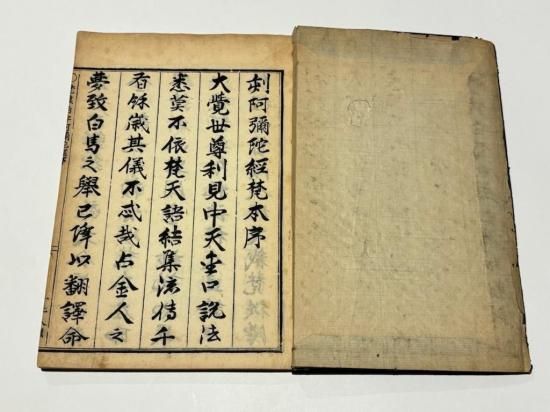 刻阿彌陀經梵本序
大覺世尊利見中天金口說法
悉莫不依梵天語結集流傳千
有餘歲其儀不忒哉占金人之
夢致白馬之舉已降以翻譯命